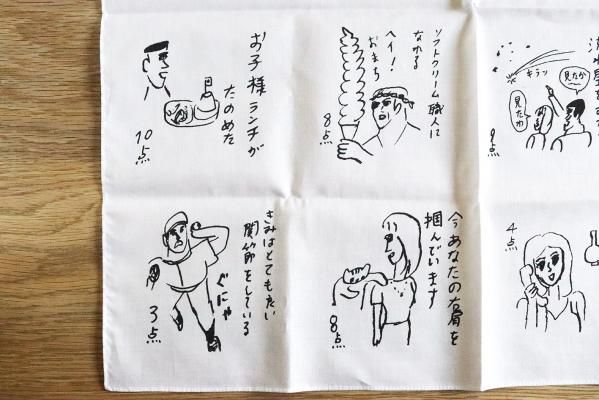 お子様ランチが
たのめた
10点
ソフトクリーム職人に
なれる
ヘイ!
おまち
8点
キラッ
見たか
見たわ
きみはとても良い
関節をしている
ぐにゃ
3点
今あなたの右肩を
掴んでいます
8点
4点